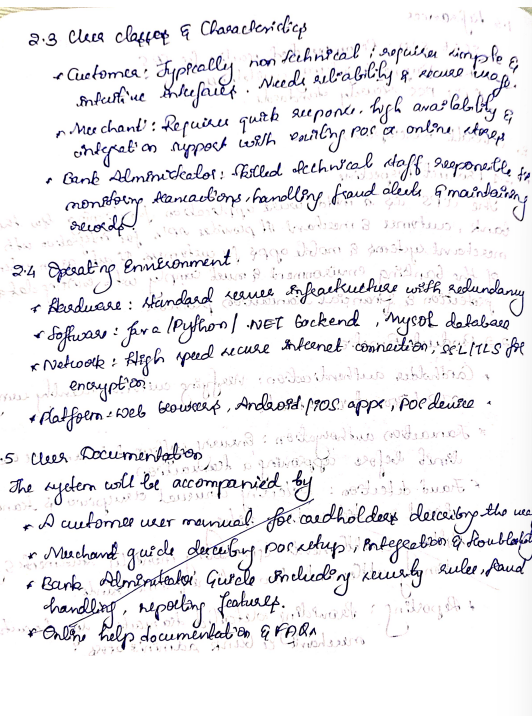 2.3 User classes & Characteristics
* Customer: Typically non technical; requires simple &
intuitive interfaces. Needs reliability & secure usage.
* Merchant: Requires quick response, high availability &
integration support with existing POS or online stores
* Bank Administrator: Skilled technical staff responsible to
monitoring transactions, handling fraud alerts & maintaining
records
2.4 Operating Environment.
* Hardware: Standard server infrastructure with redundancy
* Software: Java/Python/.NET backend, MySQL database
* Network: High speed secure internet connection, SSL/TLS for
encryption
* Platform: Web browsers, Android/IOS apps, POS device.
.5 User Documentation
The system will be accompanied by
* A customer user manual for cardholders describing the use
* Merchant guide describing POS setup, integration & troubleshoot
* Bank Administrator Guide including security rules, fraud
handling, reporting features.
* Online help documentation & FAQs